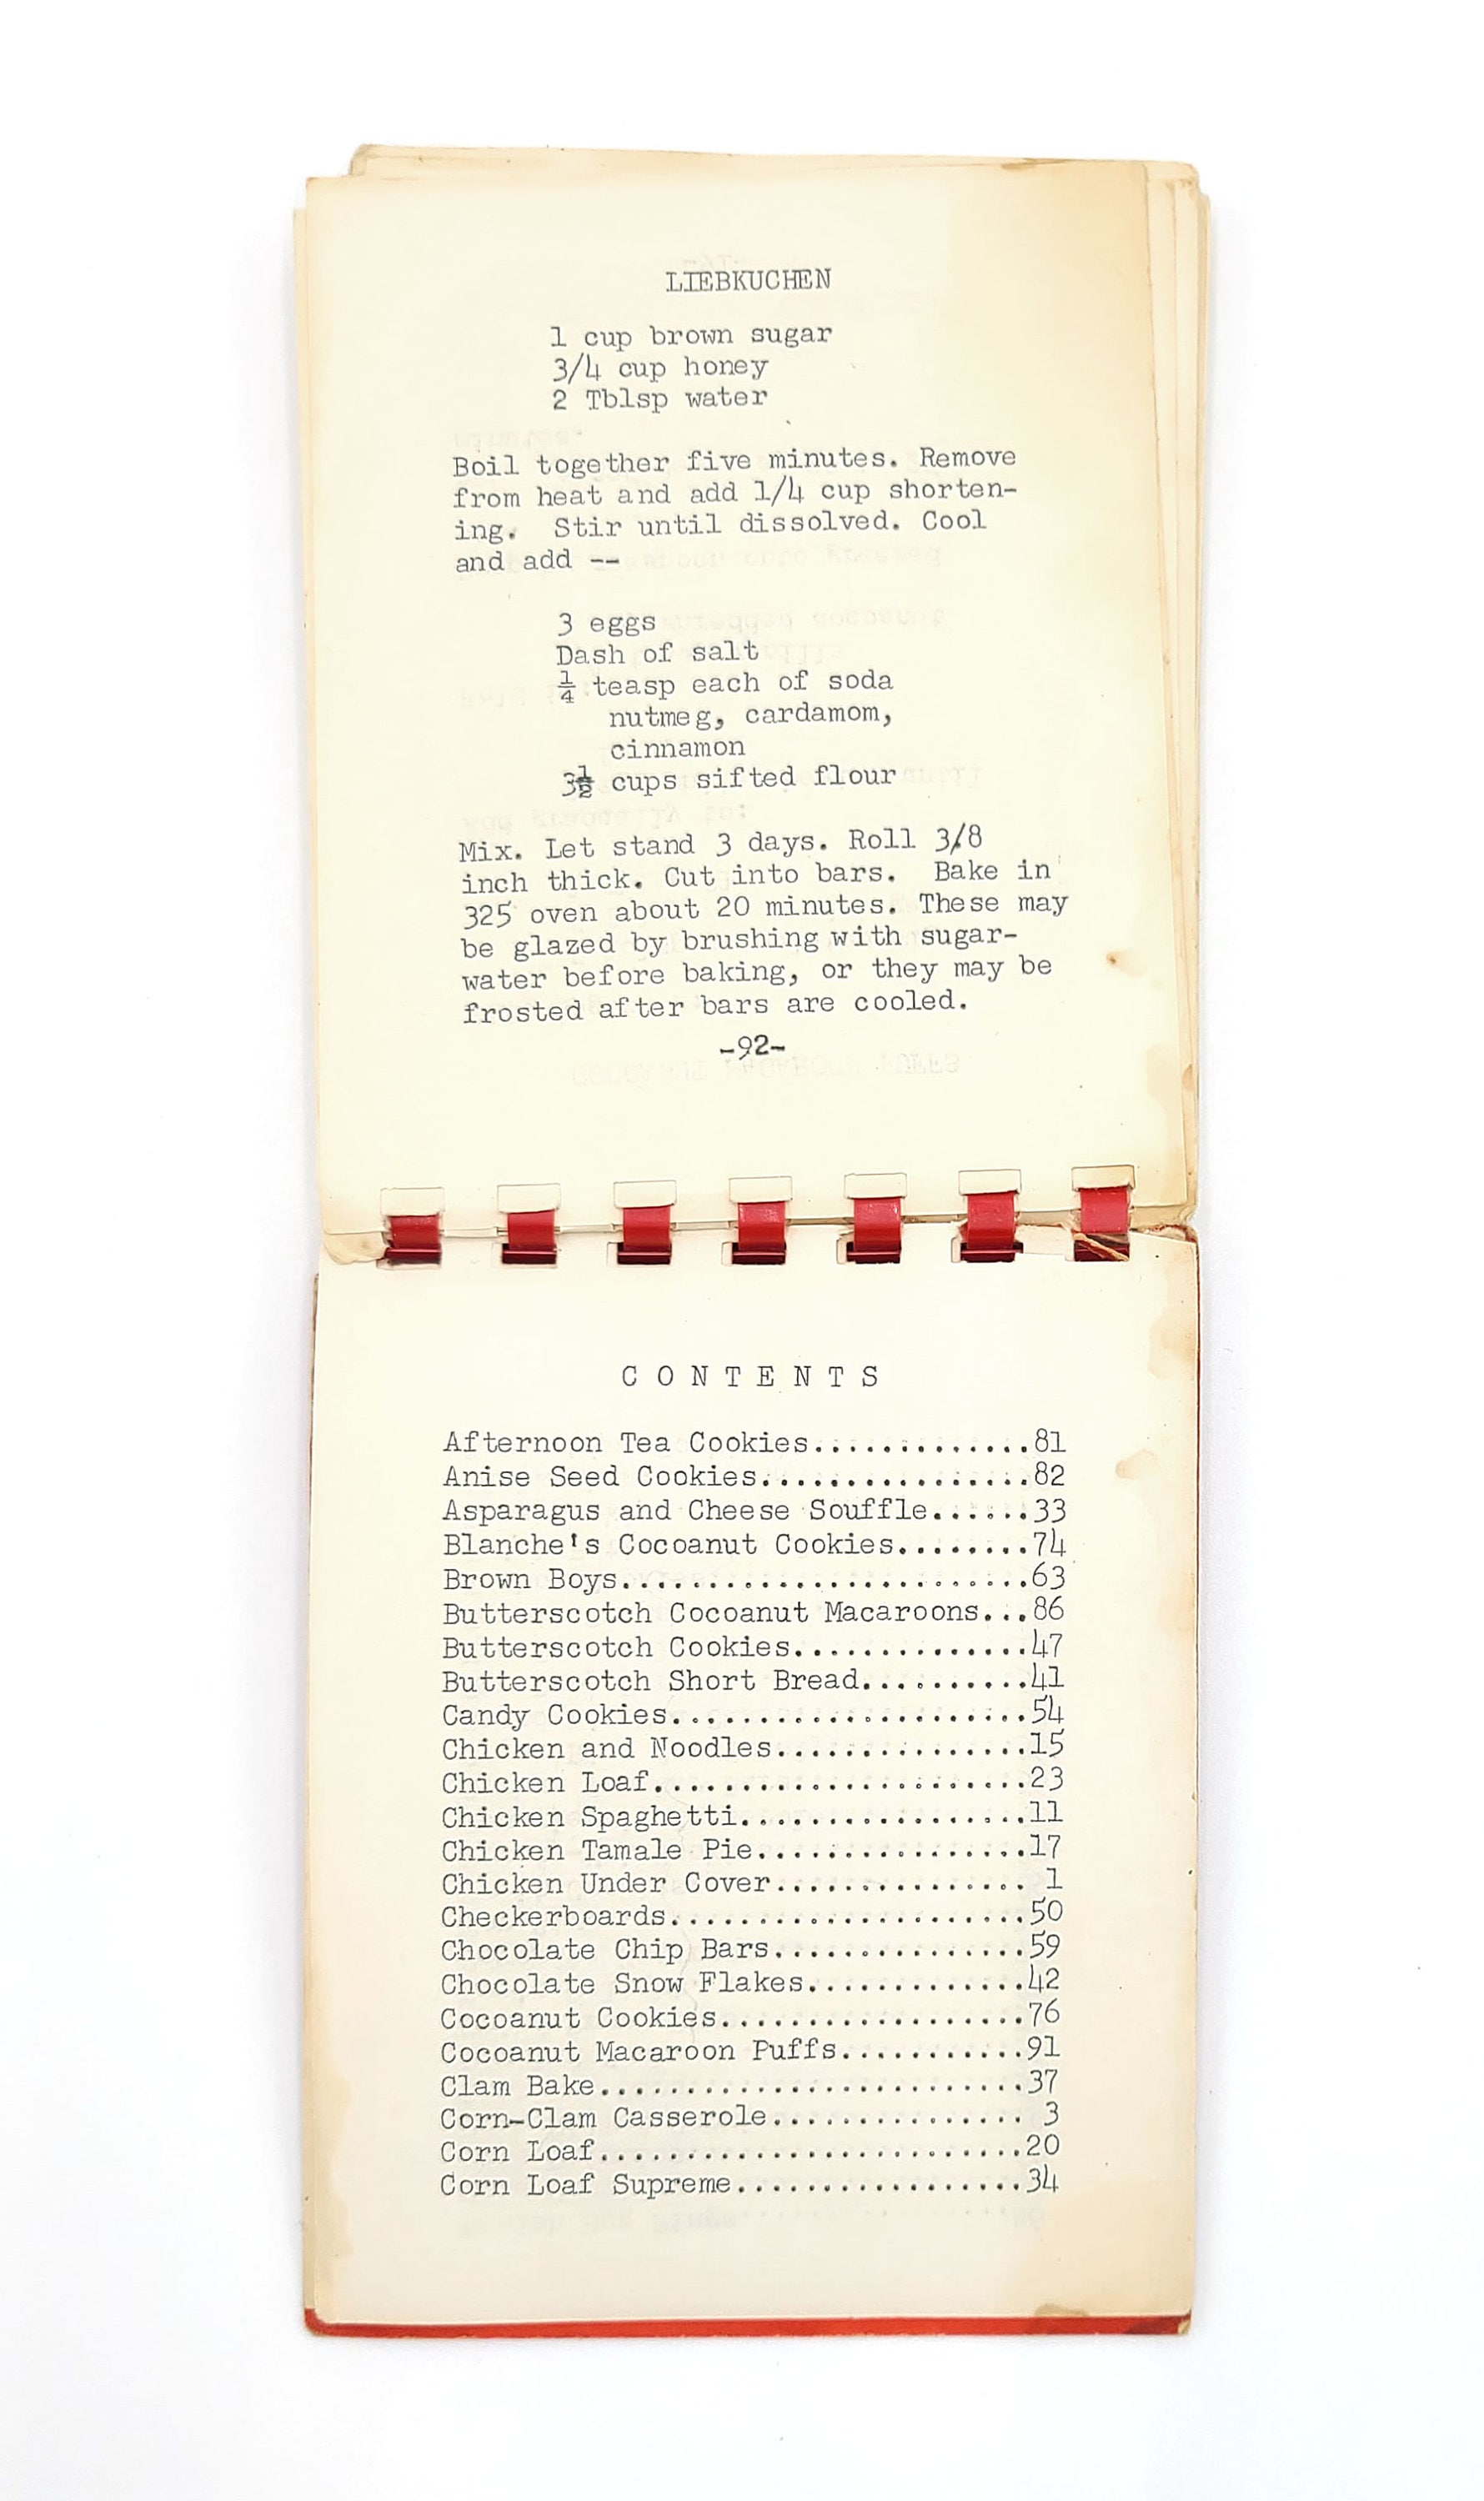 LIEBKUCHEN
1 cup brown sugar
3/4 cup honey
2 Tblsp water
Boil together five minutes. Remove
from heat and add 1/4 cup shorten-
ing. Stir until dissolved. Cool
and add --
3 eggs
Dash of salt
¼ teasp each of soda
nutmeg, cardamom,
cinnamon
3½ cups sifted flour
Mix. Let stand 3 days. Roll 3/8
inch thick. Cut into bars. Bake in
325 oven about 20 minutes. These may
be glazed by brushing with sugar-
water before baking, or they may be
frosted after bars are cooled.
-92-
CONTENTS
Afternoon Tea Cookies.............81
Anise Seed Cookies................82
Asparagus and Cheese Souffle......33
Blanche's Cocoanut Cookies........74
Brown Boys........................63
Butterscotch Cocoanut Macaroons...86
Butterscotch Cookies..............47
Butterscotch Short Bread..........41
Candy Cookies.....................54
Chicken and Noodles...............15
Chicken Loaf......................23
Chicken Spaghetti.................11
Chicken Tamale Pie................17
Chicken Under Cover............... 1
Checkerboards.....................50
Chocolate Chip Bars...............59
Chocolate Snow Flakes.............42
Cocoanut Cookies..................76
Cocoanut Macaroon Puffs...........91
Clam Bake.........................37
Corn-Clam Casserole............... 3
Corn Loaf.........................20
Corn Loaf Supreme.................34